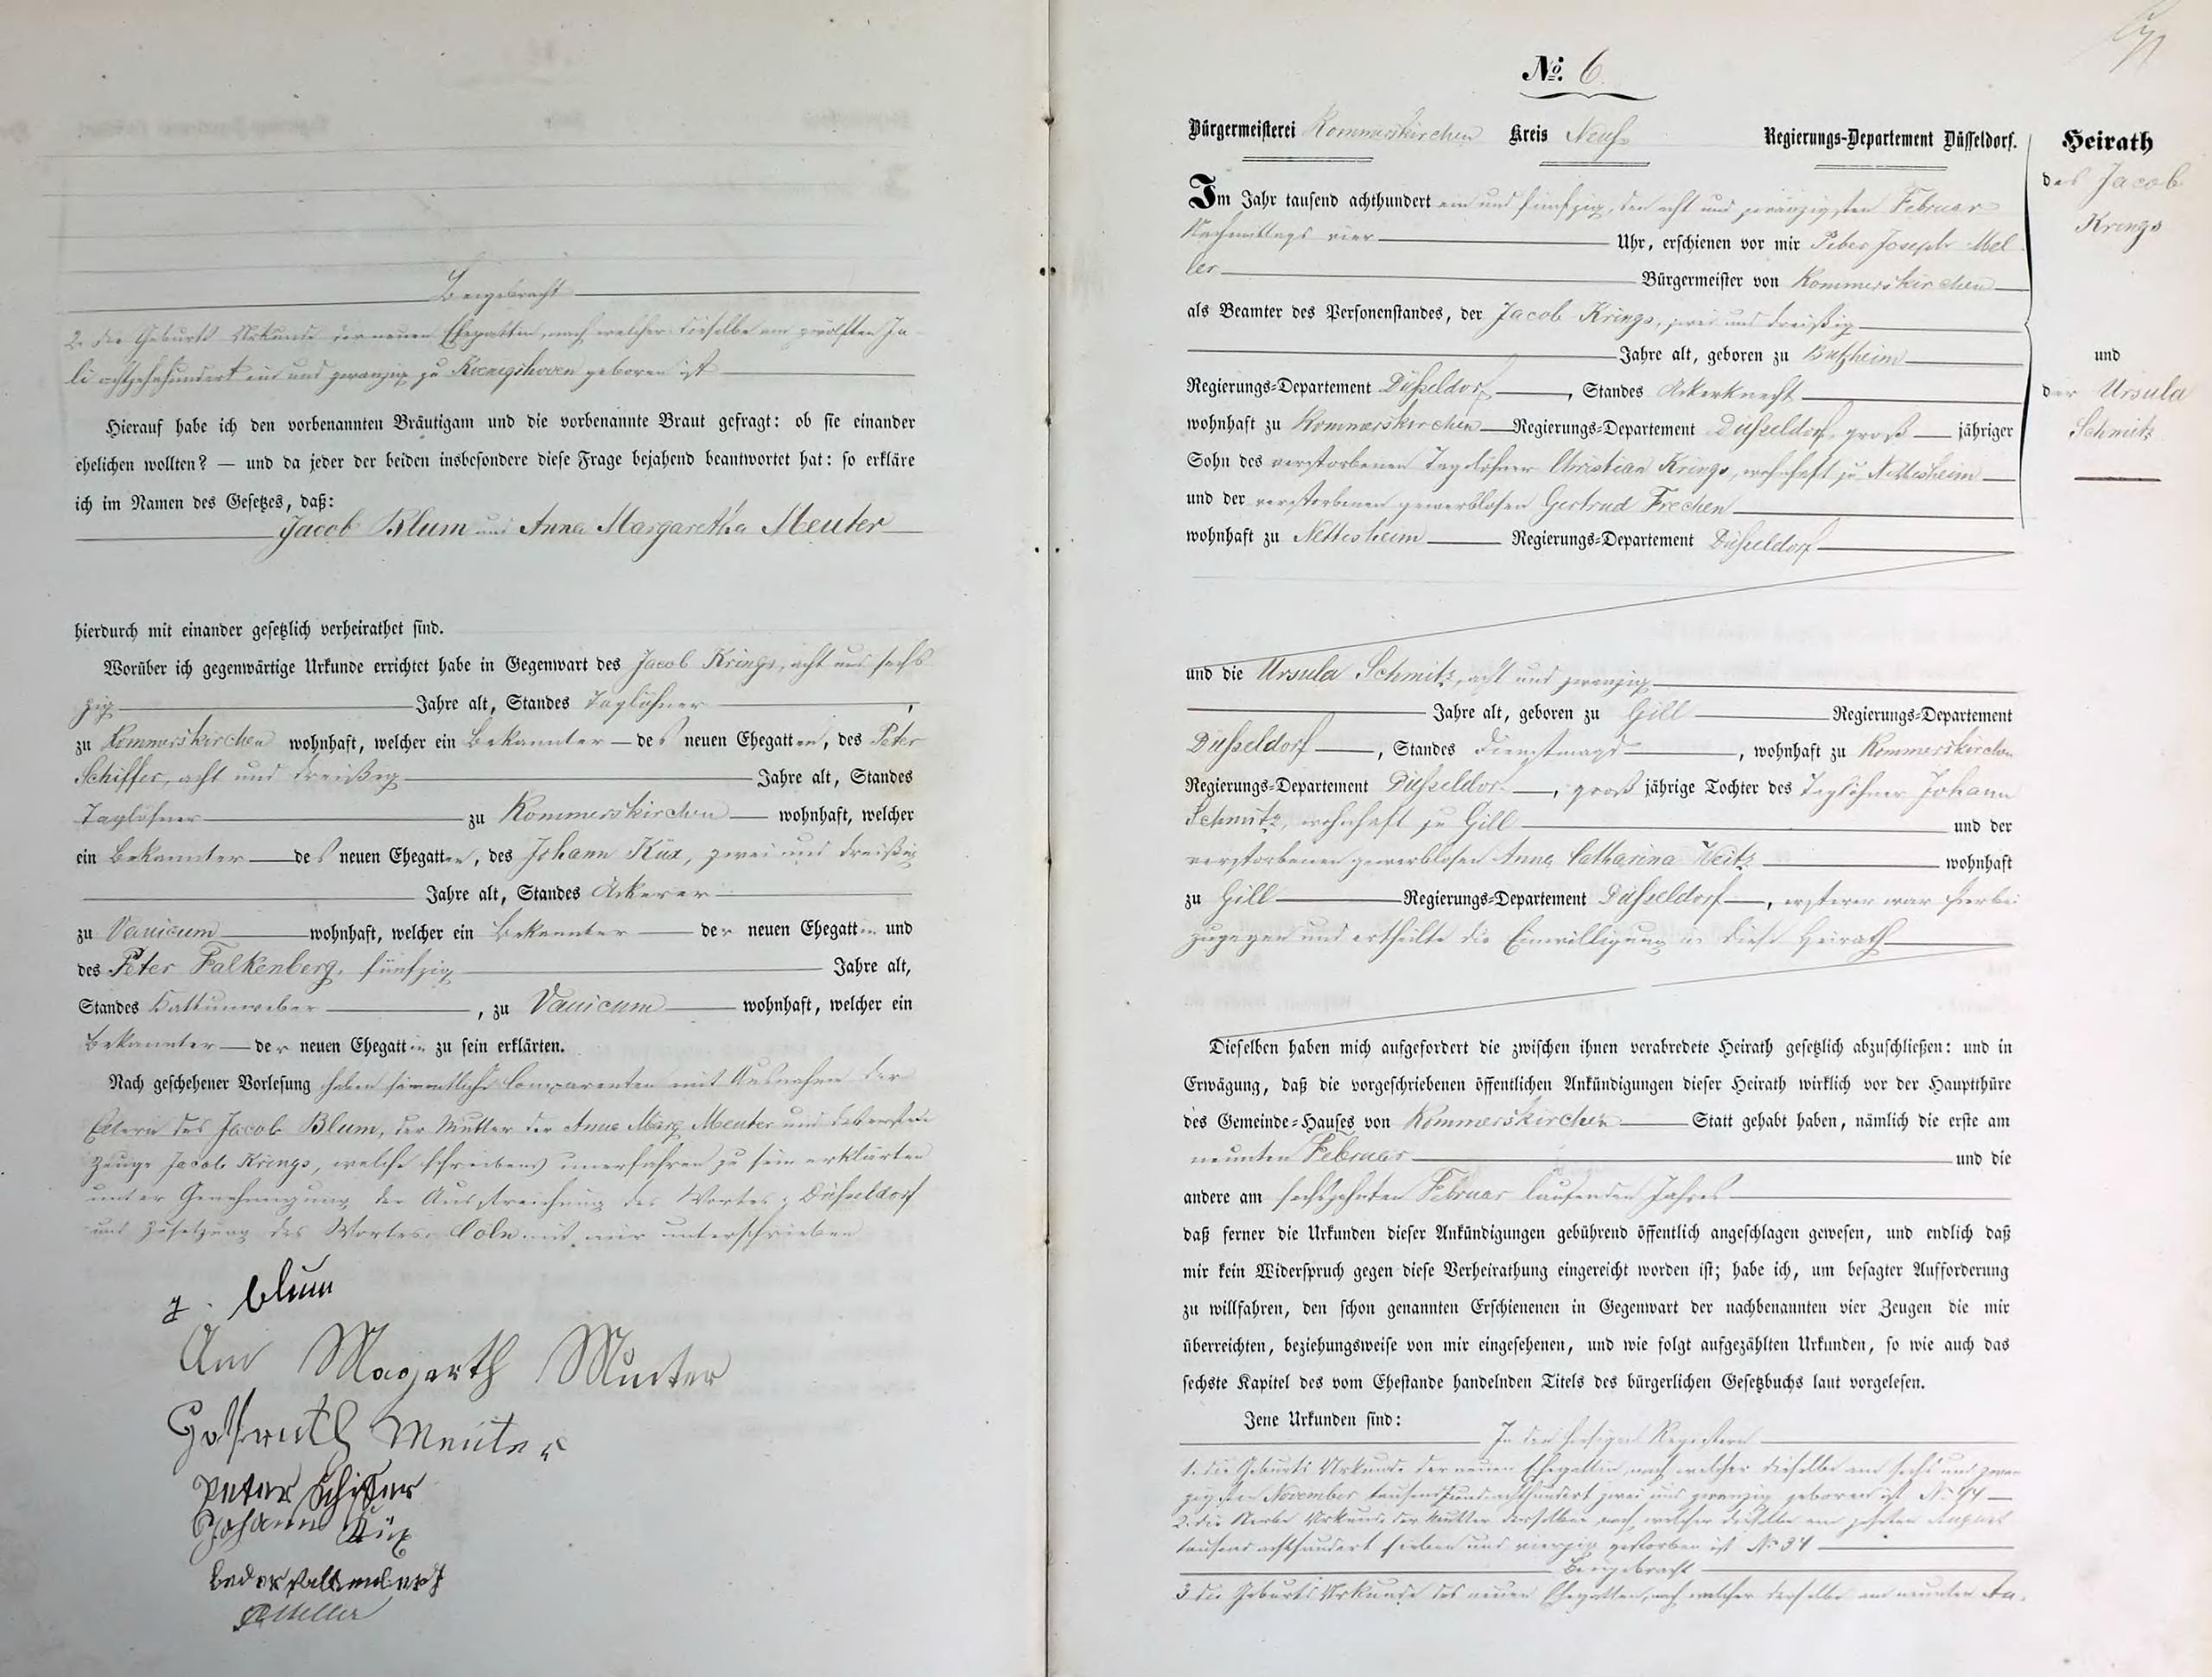 Beigebracht
2. die Geburts Urkunde der neuen Ehegattin, nach welcher dieselbe am zwölften Ju-
li achtzehnhundert ein und zwanzig zu Koenigshoven geboren ist
Hierauf habe ich den vorbenannten Bräutigam und die vorbenannte Braut gefragt: ob sie einander
ehelichen wollten? — und da jeder der beiden insbesondere diese Frage bejahend beantwortet hat: so erkläre
ich im Namen des Gesetzes, daß:
Jacob Blum und Anna Margaretha Meuter
hierdurch mit einander gesetzlich verheirathet sind.
Worüber ich gegenwärtige Urkunde errichtet habe in Gegenwart des Jacob Krings, acht und sechs
zig Jahre alt, Standes Taglöhner,
zu Rommerskirchen wohnhaft, welcher ein Bekannter des neuen Ehegatten, des Peter
Schiffer, acht und dreißig Jahre alt, Standes
Taglöhner zu Rommerskirchen wohnhaft, welcher
ein Bekannter des neuen Ehegatten, des Johann Küx, zwei und dreißig
Jahre alt, Standes Ackerer
zu Vanicum wohnhaft, welcher ein Bekannter der neuen Ehegattin und
des Peter Falkenberg, fünfzig Jahre alt,
Standes Kattunweber, zu Vanicum wohnhaft, welcher ein
Bekannter der neuen Ehegattin zu sein erklärten.
Nach geschehener Vorlesung haben sämmtliche Comparenten mit Ausnahme der
Eltern des Jacob Blum, der Mutter der Anna Marg Meuter und des ersten
Zeuge Jacob Krings, welche schreibens unerfahren zu sein erklärten
unter Genehmigung der Ausstreichung des Wortes: Düsseldorf
und Zusetzung des Wortes Coln mit mir unterschrieben
J. Blum
An Magarth Meuter
Meuter
Peter Schiffer
Johann Küx
PJMeller
No. 6
Bürgermeisterei Rommerskirchen Kreis Neuß Regierungs-Departement Düsseldorf.
Im Jahr tausend achthundert ein und fünfzig, den acht und zwanzigsten Februar
Nachmittags vier Uhr, erschienen vor mir Peter Joseph Mel
ler Bürgermeister von Rommerskirchen
als Beamter des Personenstandes, der Jacob Krings, zwei und dreißig
Jahre alt, geboren zu Butzheim
Regierungs-Departement Düsseldorf, Standes Ackerknecht
wohnhaft zu Rommerskirchen Regierungs-Departement Düsseldorf, groß jähriger
Sohn des verstorbenen Taglöhner Christian Krings, wohnhaft zu Nettesheim
und der verstorbenen gewerblosen Gertrud Frechen
wohnhaft zu Nettesheim Regierungs-Departement Düsseldorf
und die Ursula Schmitz, acht und zwanzig
Jahre alt, geboren zu Gill Regierungs-Departement
Düsseldorf, Standes Dienstmagd, wohnhaft zu Rommerskirchen
Regierungs-Departement Düsseldorf, groß jährige Tochter des Taglöhner Johann
Schmitz, wohnhaft zu Gill und der
verstorbenen gewerblosen Anna Catharina Weitz wohnhaft
zu Gill Regierungs-Departement Düsseldorf, ersterer war hierbei
zugegen und ertheilte die Einwilligung in diese Heirath
Dieselben haben mich aufgefordert die zwischen ihnen verabredete Heirath gesetzlich abzuschließen: und in
Erwägung, daß die vorgeschriebenen öffentlichen Ankündigungen dieser Heirath wirklich vor der Hauptthüre
des Gemeinde-Hauses von Rommerskirchen Statt gehabt haben, nämlich die erste am
neunten Februar und die
andere am sechszehnten Februar laufenden Jahres
daß ferner die Urkunden dieser Ankündigungen gebührend öffentlich angeschlagen gewesen, und endlich daß
mir kein Widerspruch gegen diese Verheirathung eingereicht worden ist; habe ich, um besagter Aufforderung
zu willfahren, den schon genannten Erschienenen in Gegenwart der nachbenannten vier Zeugen die mir
überreichten, beziehungsweise von mir eingesehenen, und wie folgt aufgezählten Urkunden, so wie auch das
sechste Kapitel des vom Ehestande handelnden Titels des bürgerlichen Gesetzbuchs laut vorgelesen.
Jene Urkunden sind:
In den hiesigen Registern
1. die Geburts Urkunde der neuen Ehegattin, nach welcher dieselbe am sechs und zwan
zigsten November tausend achthundert zwei und zwanzig geboren ist No 94
2. die Sterbe Urkunde der Mutter derselben, nach welcher dieselbe am zehnten August
tausend achthundert sieben und vierzig gestorben ist No 34
Beigebracht
3 die Geburts Urkunde des neuen Ehegatten, nach welcher derselbe am neunten Au-
Heirath
des Jacob
Krings
und
der Ursula
Schmitz